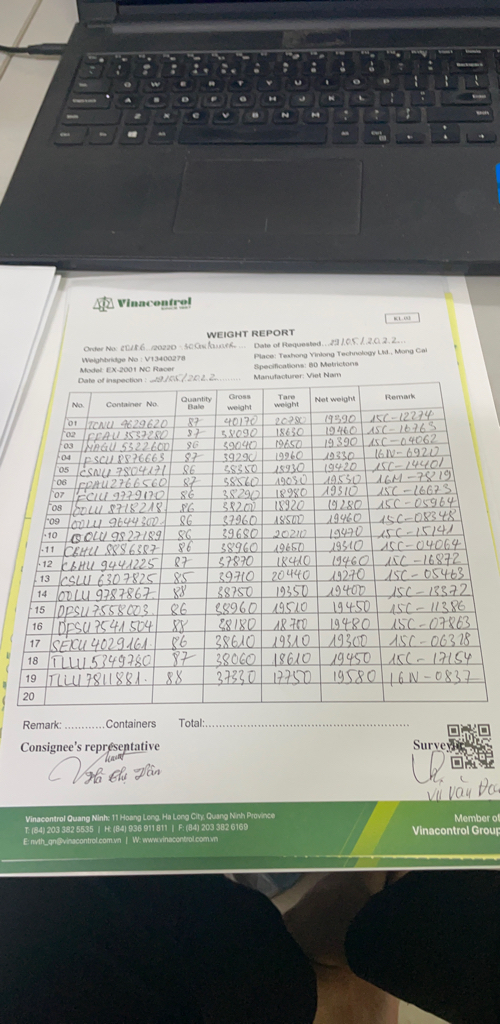 Vinacontrol
SINCE 1957
WEIGHT REPORT
Order No: /2022D Date of Requested 29/05/2022
Weighbridge No : V13400278 Place: Tashong Yinlong Technology Ltd., Mong Cai
Model: EX-2001 NC Racer Specifications: 80 Metrictons
Date of inspection : 29/05/2022 Manufacturer: Viet Nam
No. Container No. Quantity Bale Gross weight Tare weight Net weight Remark
01 TCNU 9629620 87 40170 20780 19390 15C-12274
02 1537280 87 38090 18630 19460 15C-16763
03 5322600 86 39040 19650 19390 15C-04062
04 FSCU 8876663 87 39290 19960 19330 16N-6920
05 CSNU 7804171 86 38350 18930 19420 15C-14401
06 2766560 87 38560 19030 19530 16M-7819
07 FCIU 9779170 86 38290 18980 19310 15C-16673
08 OOLU 8718218 86 38200 18920 19280 15C-05964
09 OOLU 9644300 86 37960 18500 19460 15C-08348
10 9827189 86 39680 20210 19470 15C-15141
11 8886387 86 38960 19650 19310 15C-04064
12 9441225 87 37870 18410 19460 15C-16872
13 CSLU 6307825 85 39710 20440 19270 15C-05463
14 OOLU 9787867 88 38750 19350 19400 15C-13372
15 DFSU 7558003 86 38960 19510 19450 15C-11386
16 DFSU 7541504 88 38180 18700 19480 15C-07863
17 4029161 86 38610 19310 19300 15C-06378
18 TLLU 5349780 87 38060 18610 19450 15C-17154
19 TLLU 7811881 88 37330 17750 19580 16N-0837
20
Remark: ............Containers Total:
Consignee's representative
Vũ Văn
Vinacontrol Quang Ninh: 11 Hoang Long, Ha Long City, Quang Ninh Province
T: (84) 203 382 5535 | H: (84) 936 911 811 | F: (84) 203 382 6169
E: nvth_qn@vinacontrol.com.vn | W: www.vinacontrol.com.vn
Member of
Vinacontrol Group